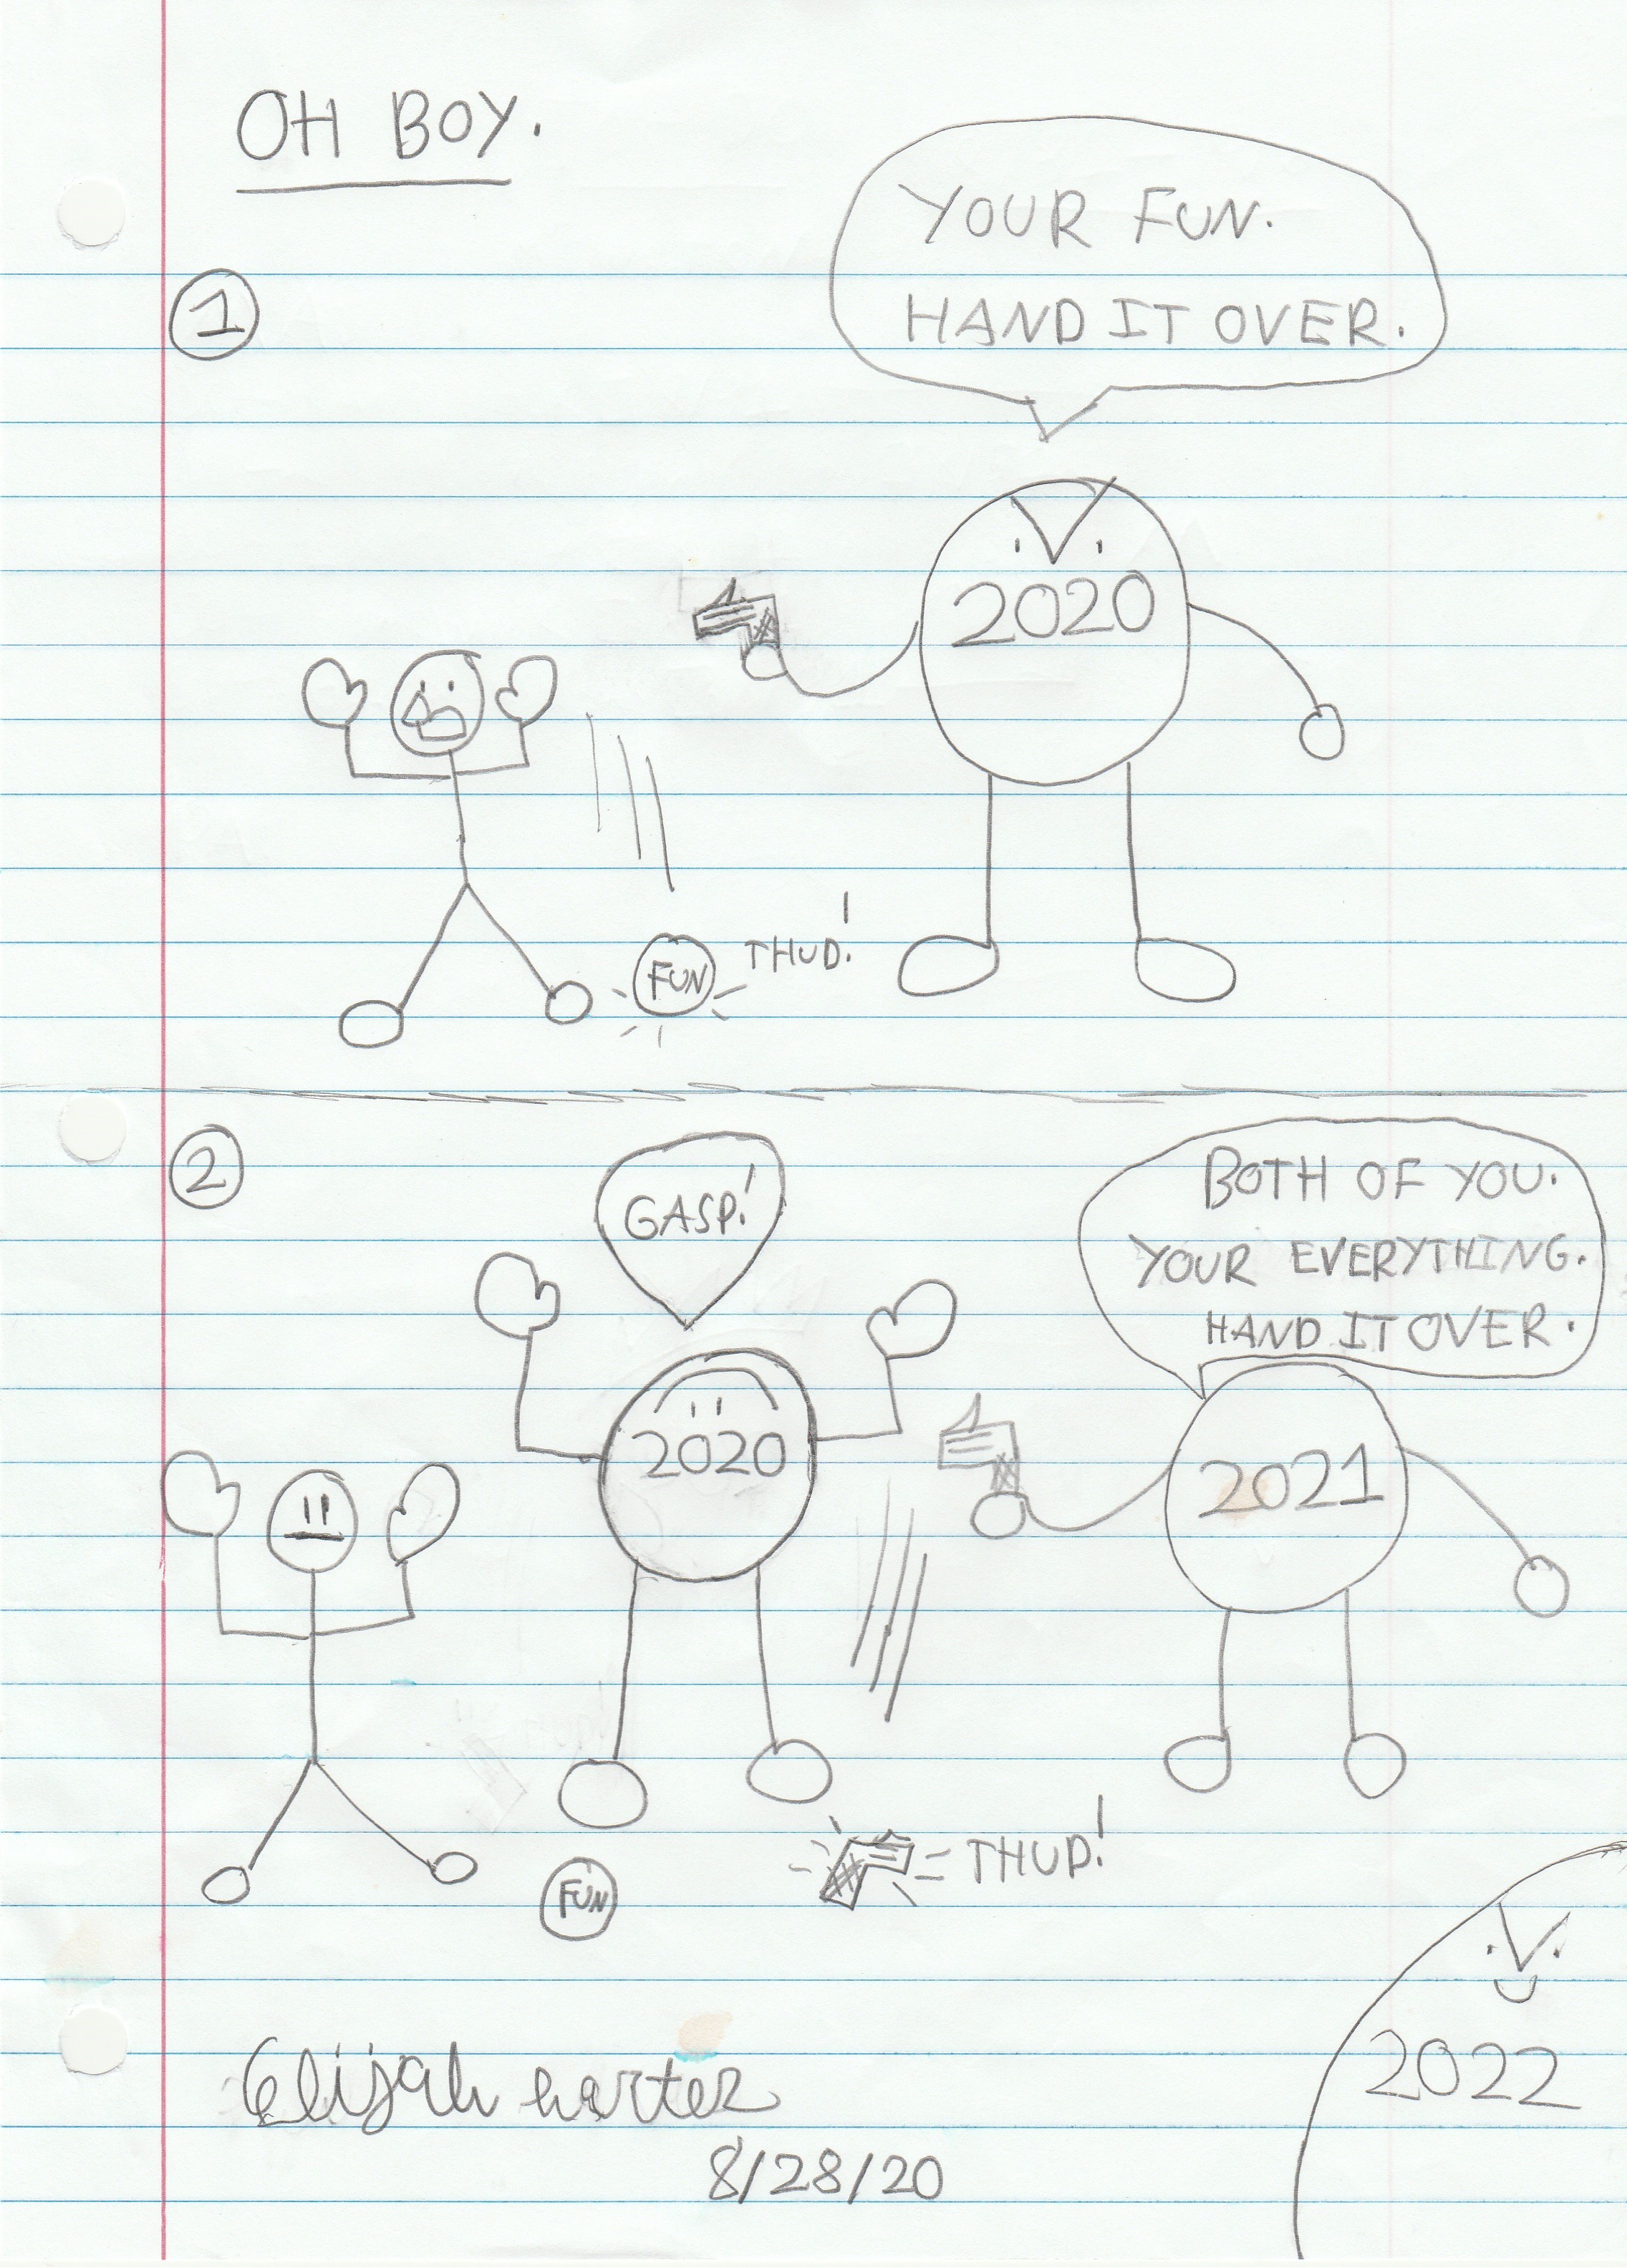 OH BOY.
1
YOUR FUN.
HAND IT OVER.
2020
FUN
THUD!
2
GASP!
BOTH OF YOU.
YOUR EVERYTHING.
HAND IT OVER.
2020
2021
FUN
THUD!
2022
Elijah
8/28/20